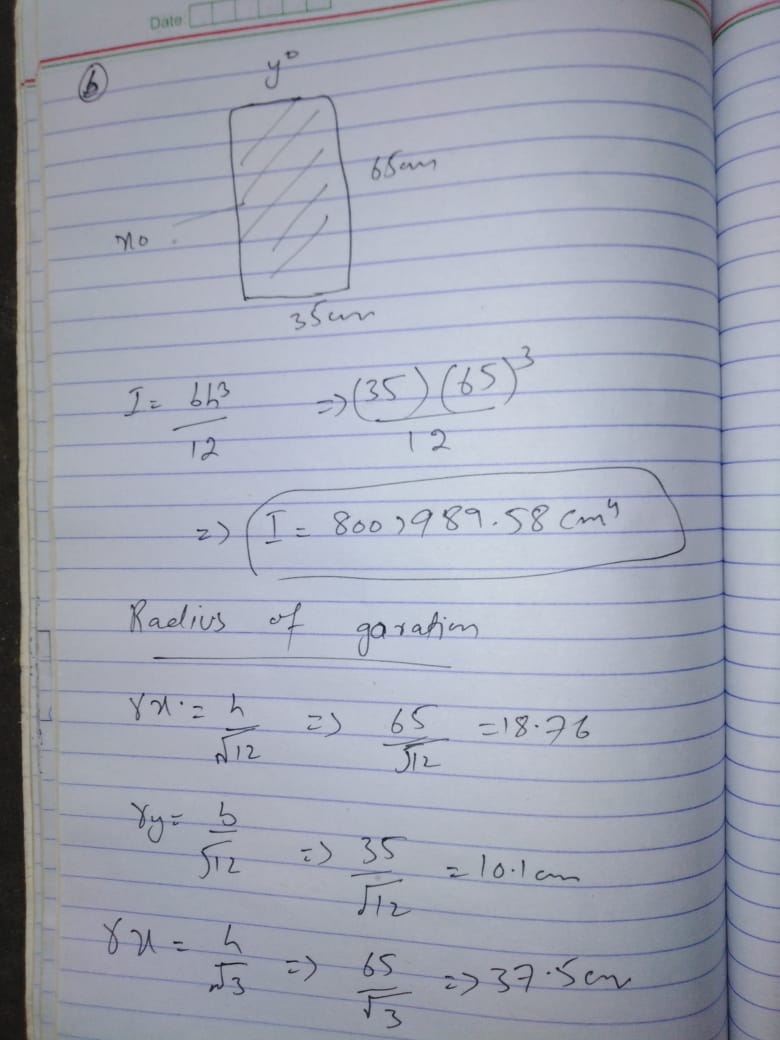 Date
b
y°
65cm
xo
35cm
I = bh³/12 => (35)(65)³/12
=> I = 800,989.58 cm⁴
Radius of garation
rx = h/√12 => 65/√12 = 18.76
ry = b/√12 => 35/√12 = 10.1cm
rx = h/√3 => 65/√3 => 37.5cm